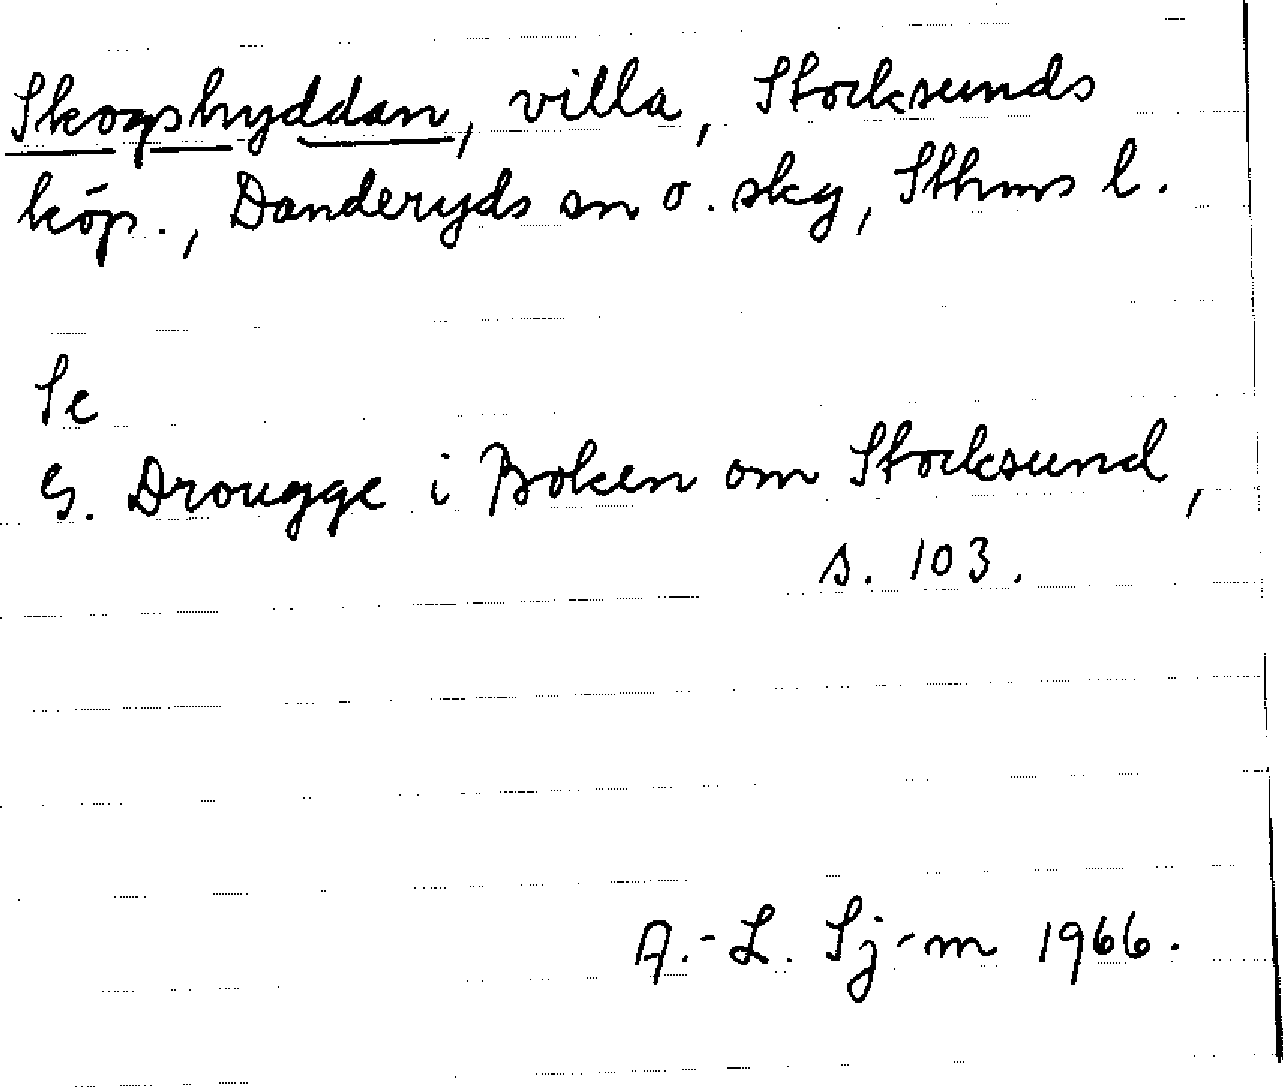 Skogshyddan, villa, Stocksunds
köp., Danderyds sn o. skg, Sthms l.
Se
G. Drougge i Boken om Stocksund,
s. 103.
A.-L. Sj-m 1966.